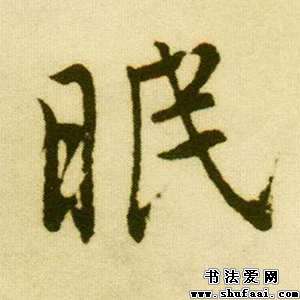 眠
书法爱网
www.shufaai.com